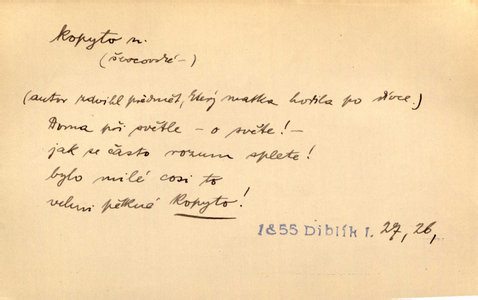 kopyto n.
(ševcovské –)
(autor zdvihl předmět, který matka hodila po dívce.)
Doma při světle – o světe! –
jak se často rozum splete!
bylo milé cosi to
velmi pěkné kopyto!
1855 Diblík 1. 27, 26,